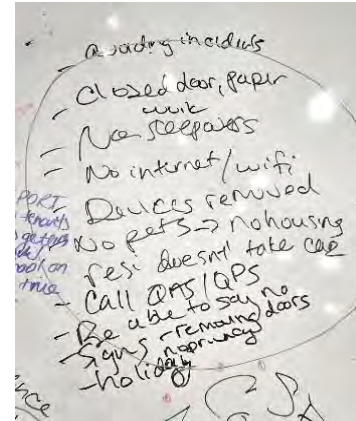 - avoiding incidents
- Closed door, paper
work
- No sleepovers
- No internet/wifi
- Devices removed
- No pets → no housing
resi doesnt take car
- Call QAS/QPS
- Be able to say no
- Signs - removing doors
no privacy
- holiday
PORT
tenants
on
time